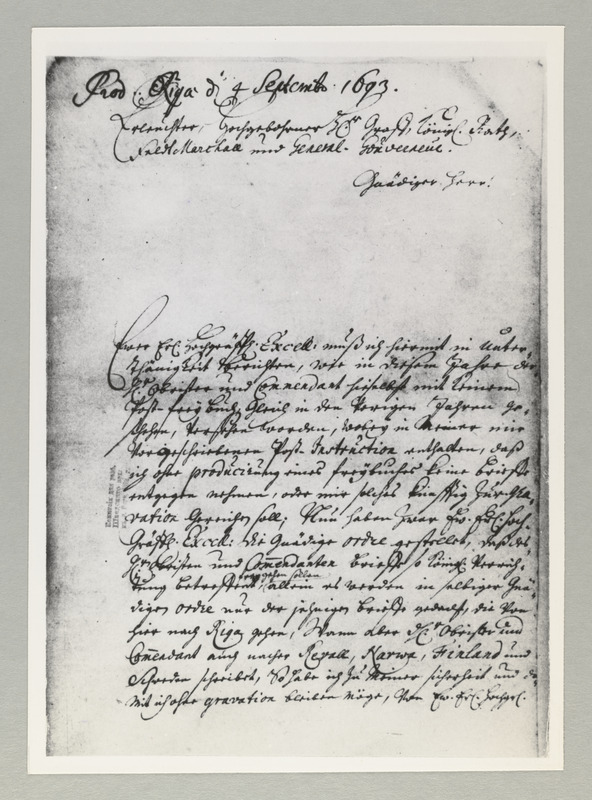 Prod. Riga d. 4 Septembr. 1693.
Erleuchter, Hochgebohrner Hr. Graff, Königl. Rath,
Feldt Marchall und General-Gouverneur.
Gnädiger Herr!
Ewer Erl. Hochgräffl. Excell. muß ich hiermit in Unter-
thänigkeit berichten, wie in diesem Jahre der
Hr. Obrister und Commendant hieselbst mit keinem
Post-freybuch, gleich in den Vorigen Jahren ge-
schehen, versehen worden, wobey in Meiner mir
Vorgeschriebenen Post-Instruction enthalten, daß
ich ohne producirung eines freybuches keine brieffe
entgegen nehmen, oder mir solches künfftig zur gra-
vation gereichen soll; Nun haben zwar Ew. Erl. Hoch-
Gräffl. Excell. die Gnädige ordre gestellet, daß des
Hr. Obristen und Commendanten brieffe so Königl. Verrich-
tung betreffent, frey gehen sollen allein es werden in selbiger Gnä-
digen ordre nur der jehnigen brieffe gedacht, die Von
hier nach Riga gehen, Wann aber der Hr. Obrister und
Commendant auch nacher Revall, Narva, Finland und
Schweden schreibet, So habe ich zu Meiner sicherheit und da-
mit ich ohne gravation bleiben möge, Von Ew. Erl. Hochgräfl.